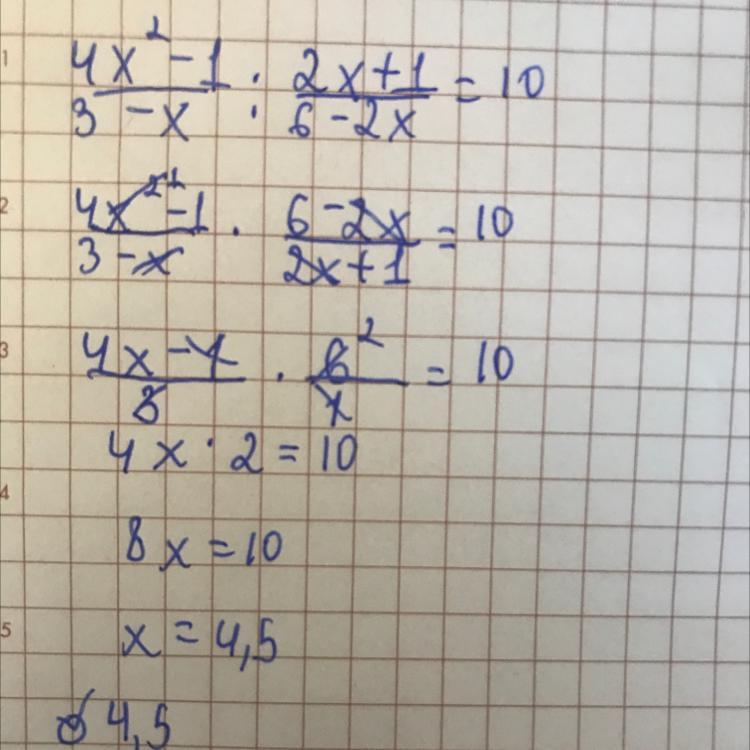 1 (4x² - 1)/(3 - x) : (2x + 1)/(6 - 2x) = 10
2 (4x² ¹ - 1)/(3 - x) · (6 - 2x)/(2x + 1) = 10
3 (4x - 1)/3 · 6²/1 = 10
4x · 2 = 10
4
8x = 10
5 x = 4,5
4,5